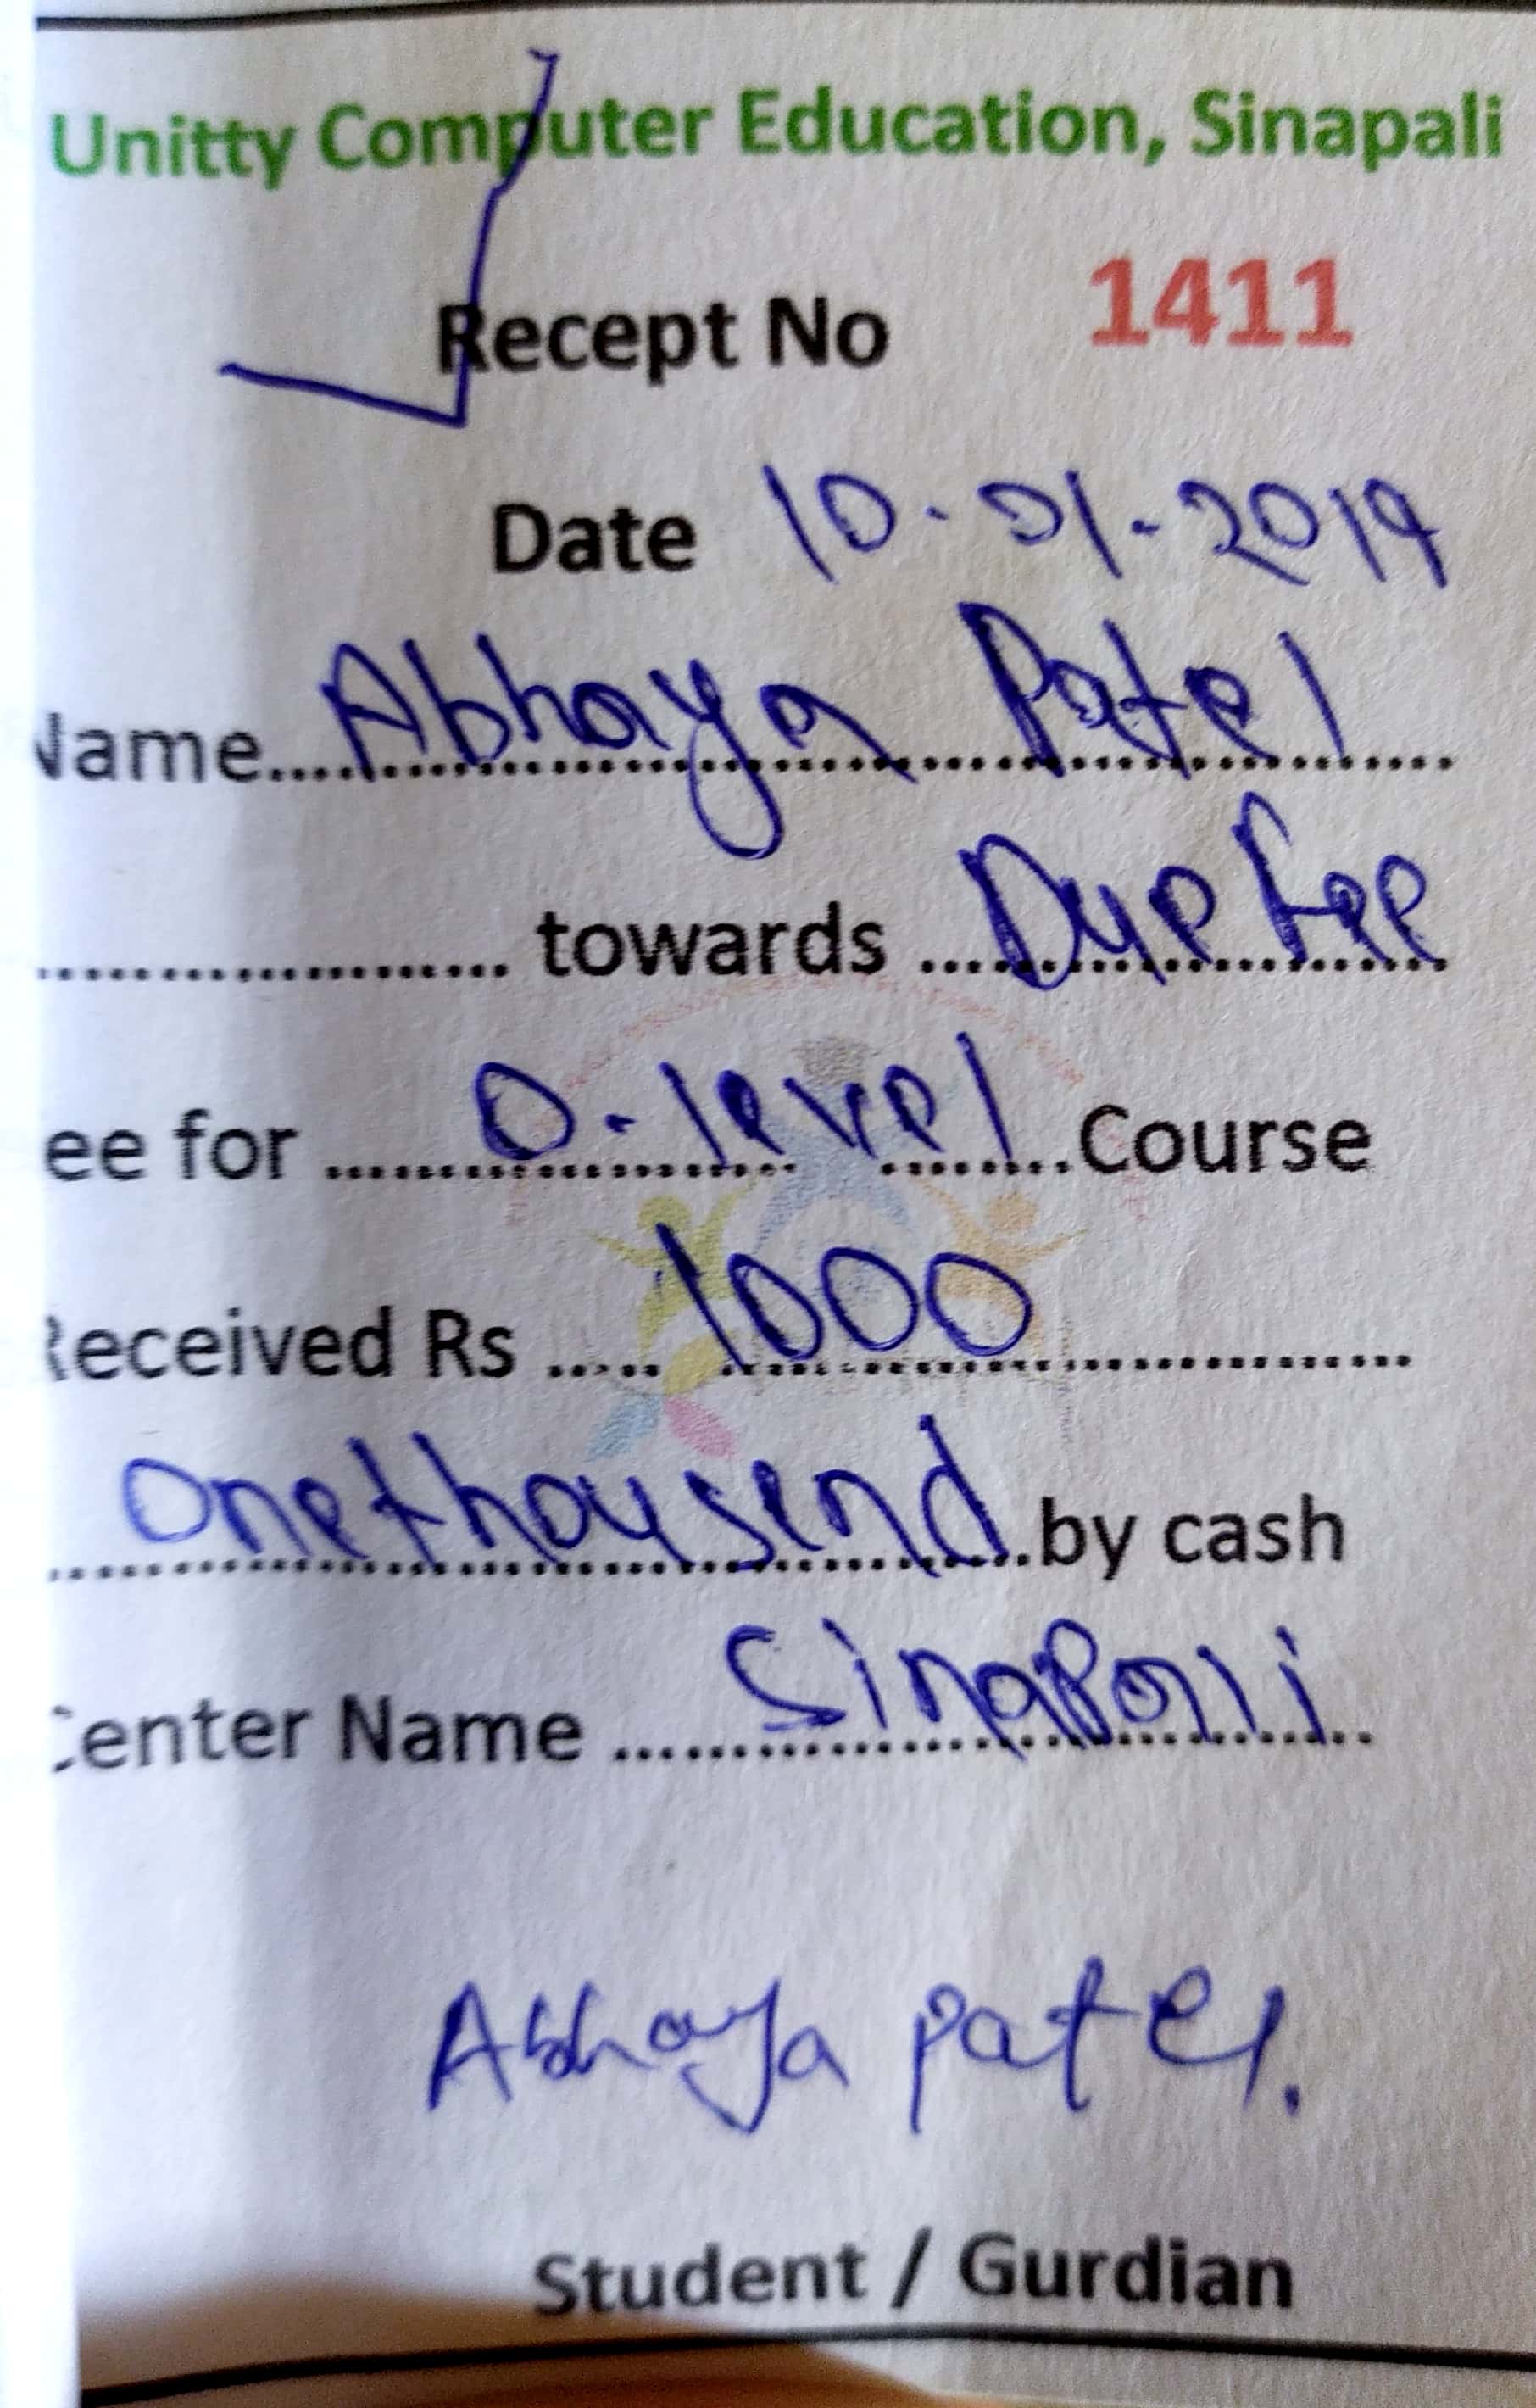 Unitty Computer Education, Sinapali
Recept No 1411
Date 10-01-2019
Name.... Abhaya Patel
.................... towards .... Due fee
ee for .... O-level ....Course
Received Rs ..... 1000 ....
onethousend ..by cash
Center Name .... Sinapali
Abhaya patel.
Student / Gurdian